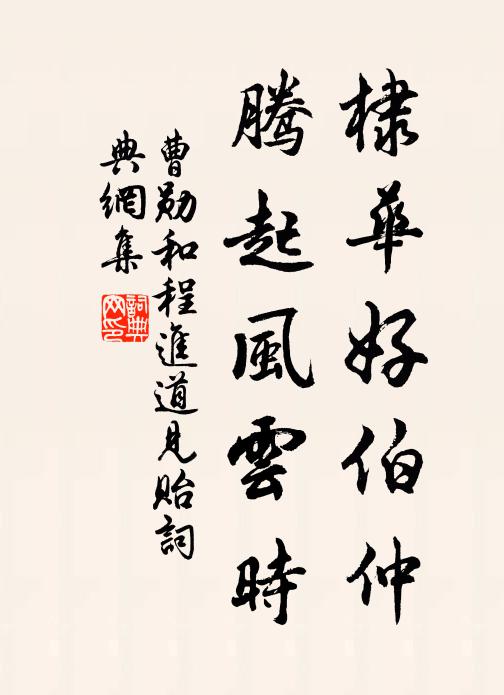 棣華好伯仲
騰起風雲時
曹勛和程進道見貽詞
典網集
詞典網印